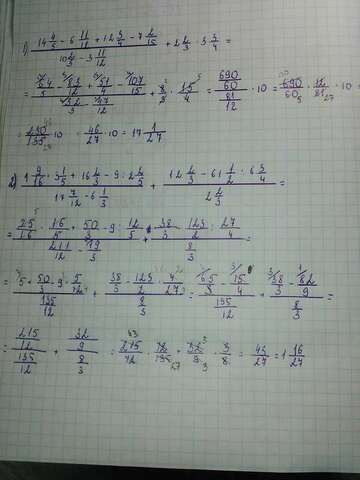 1) (14 4/5 - 6 11/12 + 12 3/4 - 7 2/15) / (10 2/3 - 3 11/12) + 2 2/3 · 3 3/4 =
= (64/5 - 83/12 + 51/4 - 107/15) / (32/2 - 47/12) + 8/3 · 15/4 = (690/60) / (81/12) · 10 = 690/60 · 12/81 · 10 =
= 230/135 · 10 = 46/27 · 10 = 17 1/27
2) (1 9/16 · 3 1/5 + 16 2/3 - 9 : 2 2/5) / (17 7/12 - 6 1/3) + (12 2/3 - 61 1/2 : 6 3/4) / (2 2/3) =
= (25/16 · 16/5 + 50/3 - 9 : 12/5) / (211/12 - 19/3) + (38/3 - 123/2 : 27/4) / (8/3) =
= (5 + 50/3 - 9 · 5/12) / (135/12) + (38/3 - 123/2 · 4/27) / (8/3) = (65/3 - 15/4) / (135/12) + (38/3 - 82/9) / (8/3) =
= (215/12) / (135/12) + (32/9) / (8/3) = 215/12 · 12/135 + 32/9 · 3/8 = 43/27 = 1 16/27